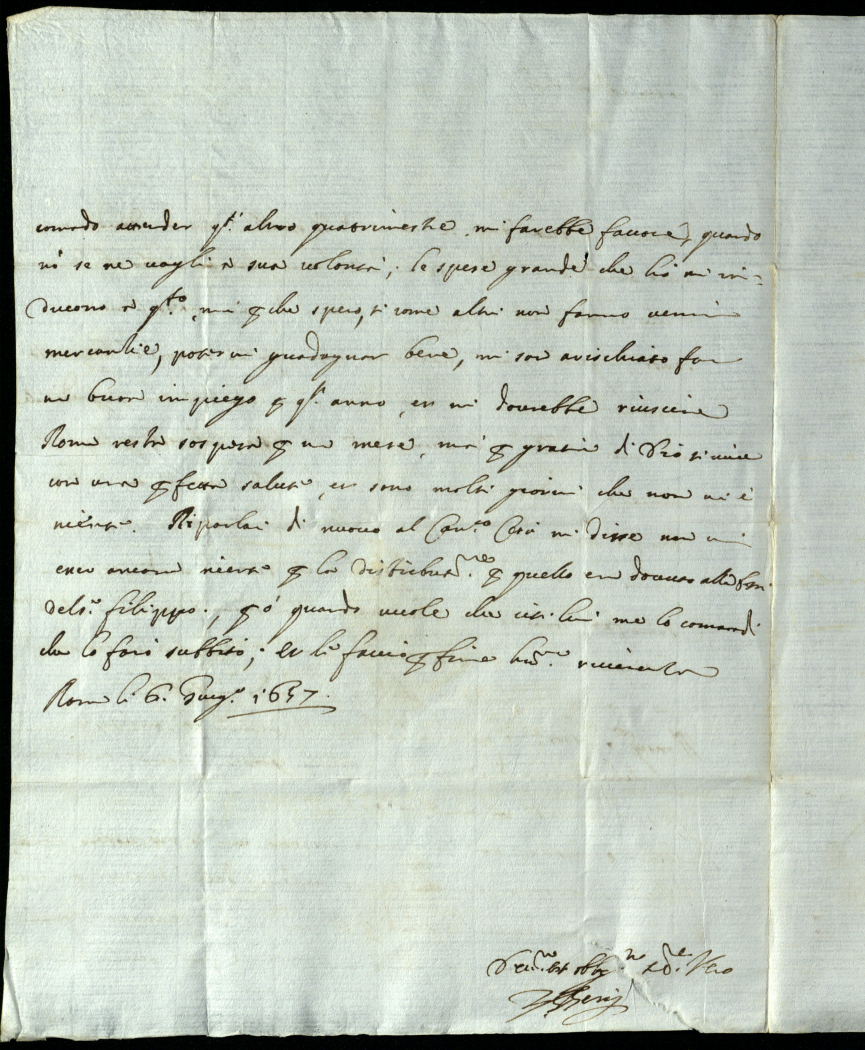 comodo attender q.to altro quatrimestre, mi farebbe favore, quando
nõ se ne vaglia a sua volontà; le spese grande che hò mi in-
ducono a q.to, mà ꝑche spero, si come altri non fanno venir
mercantie, potervi guadagnar bene, mi son arischiato far
un buon impiego ꝑ q.to anno, et mi dovrebbe riuscire
Roma resta sospesa ꝑ un mese, mà ꝑ gratia di Dio si vive
con una ꝑfetta salute, et sono molti giorni che non vi è
niente. Riparlai di nuovo al Can.co mi disse non vi
era ancora niente ꝑ la ꝑ quello era dovuto alli
del S.r Filippo, ꝑò quando vuole che me lo comandi
che lo farò subbito; et li faccio ꝑ fine hu.te riverenza
Roma li 6. Giug.o 1657.
et obb.mo